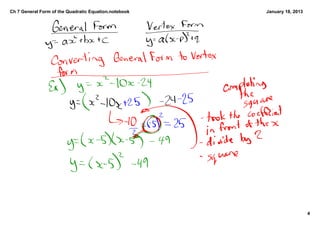 Ch 7 General Form of the Quadratic Equation.notebook
January 18, 2013
General Form
Vertex Form
y=ax²+bx+c
y=a(x-p)²+q
Converting General Form to Vertex
form
Ex) y=x²-10x-24
Completing
the
square
y=(x²-10x+25) -24-25
-10/2 (-5)²=25
- took the coefficient
in front of the x
- divide by 2
- square
y=(x-5)(x-5) -49
y=(x-5)² -49
4